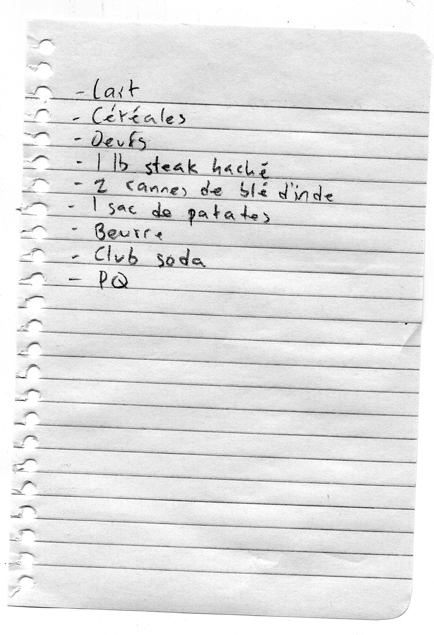 - Lait
- Céréales
- Oeufs
- 1 lb steak haché
- 2 cannes de blé d'inde
- 1 sac de patates
- Beurre
- Club soda
- PQ